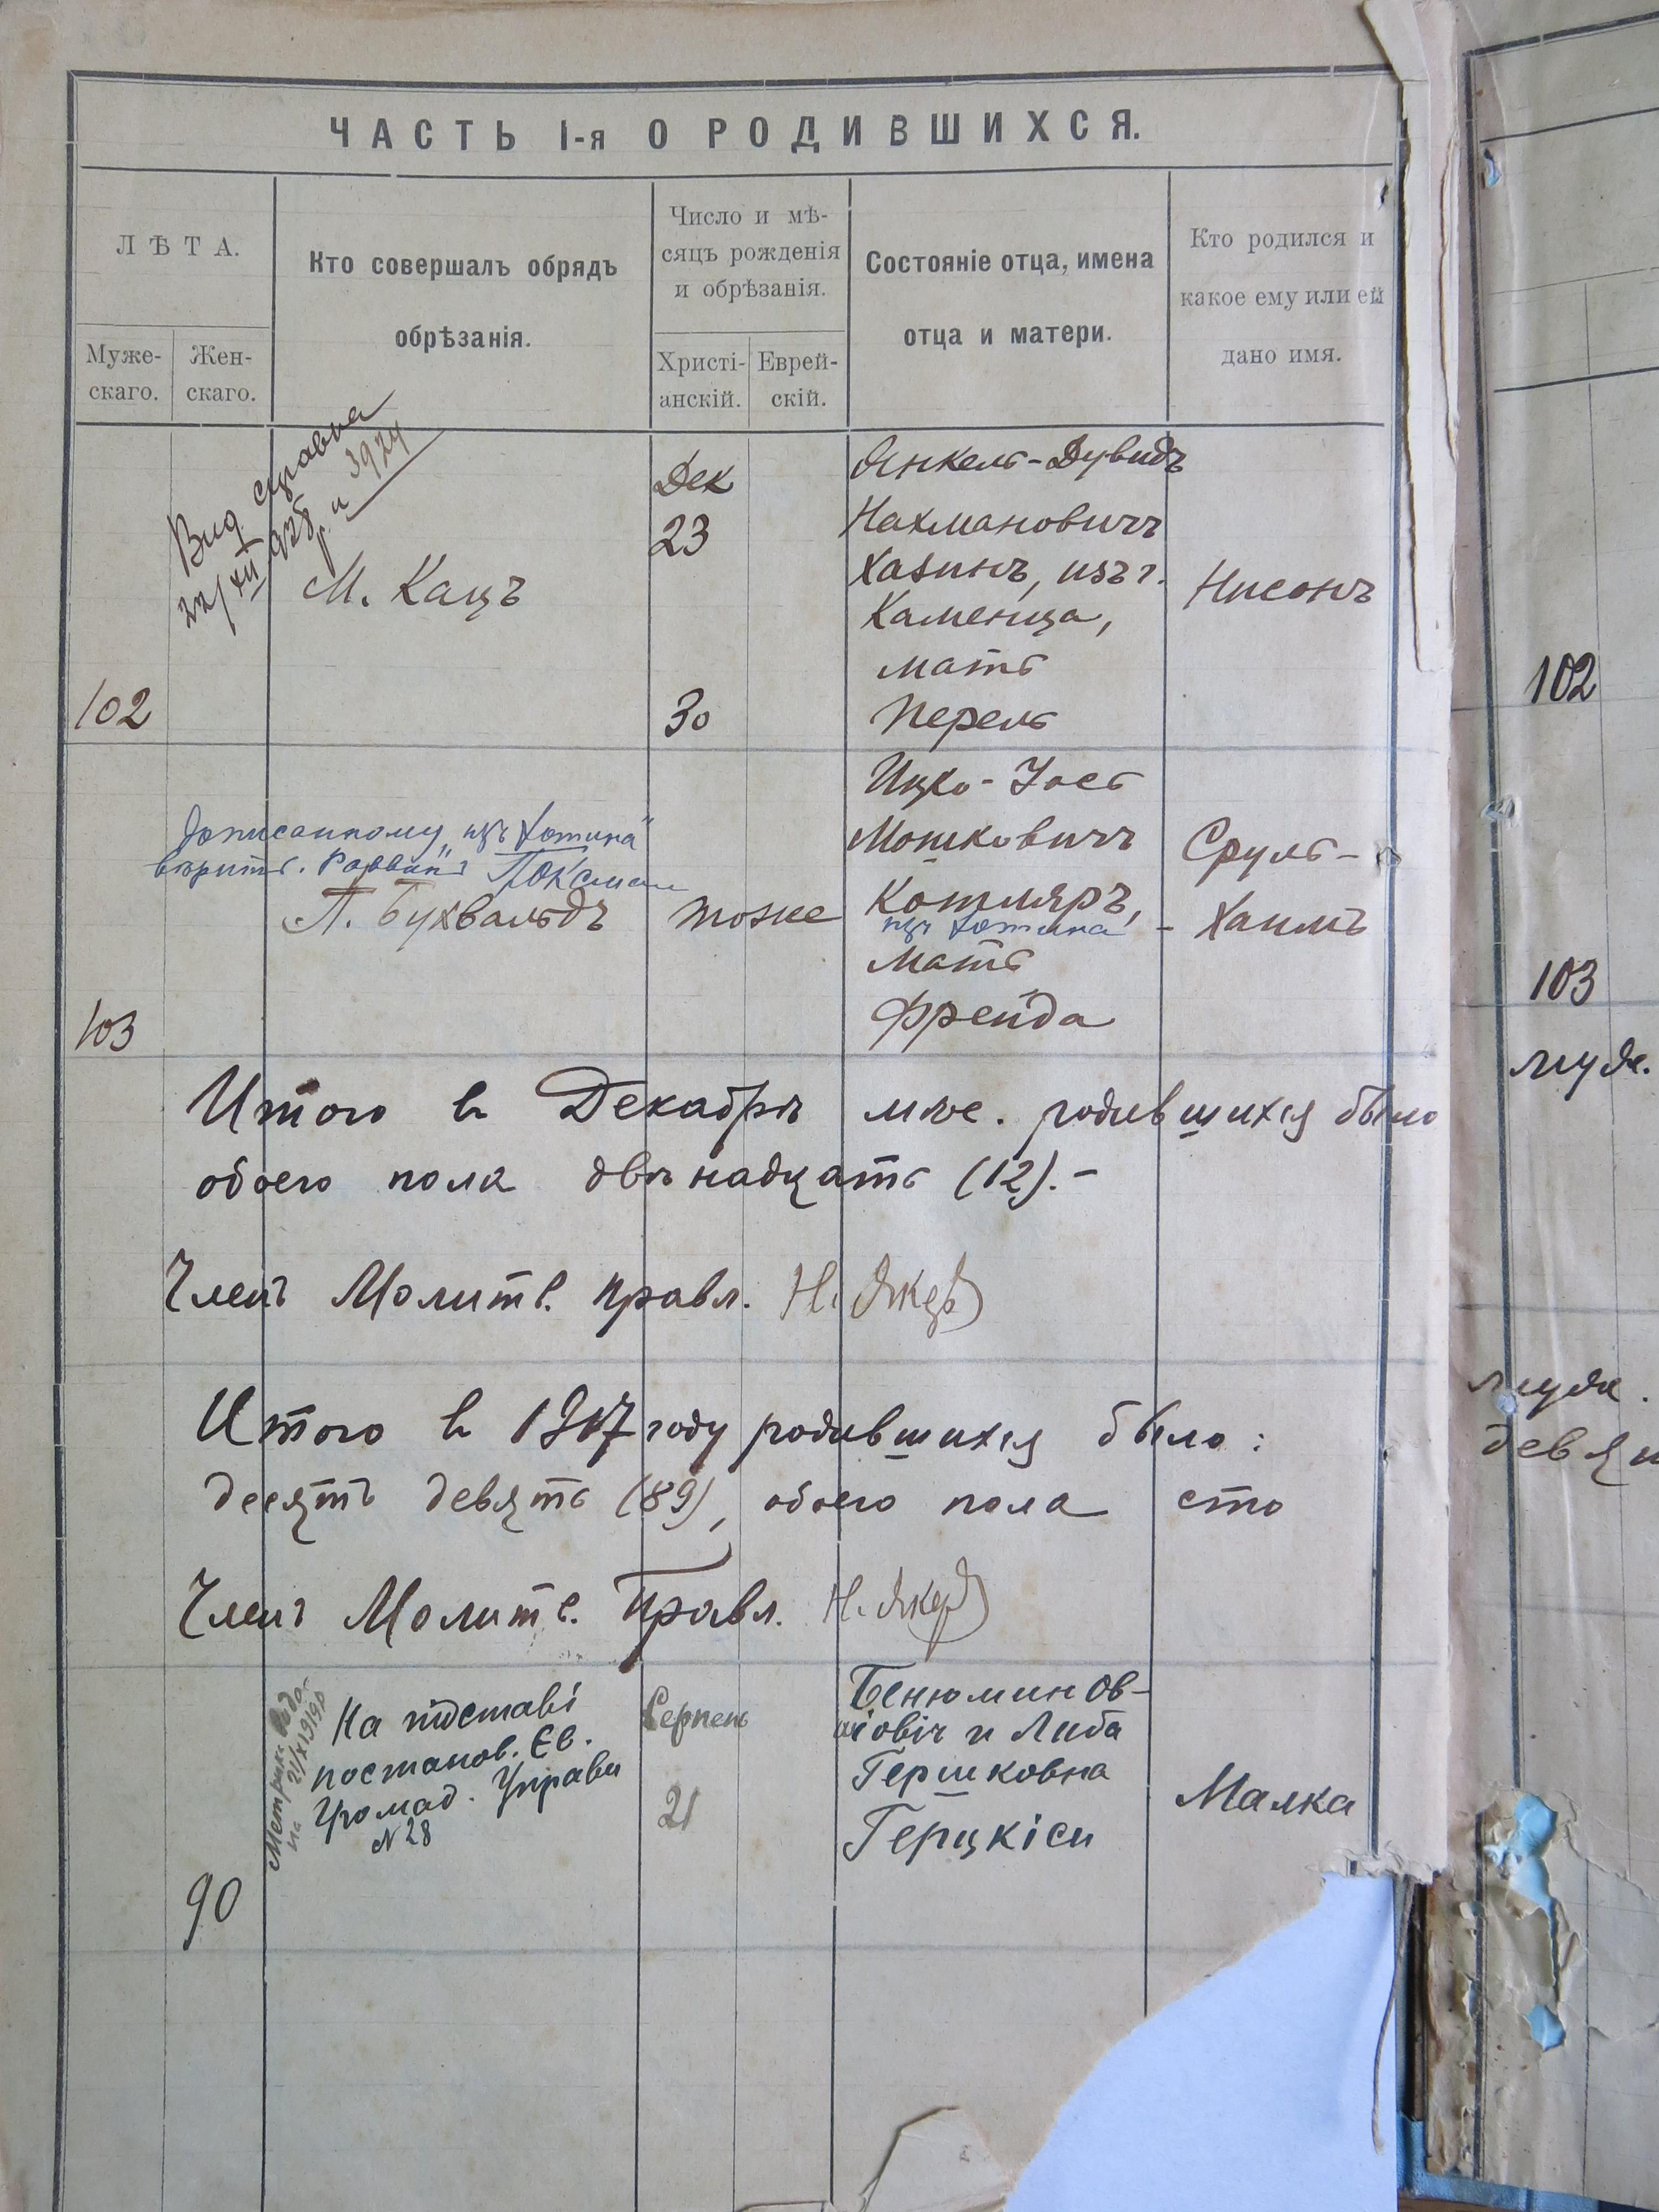 ЧАСТЬ I-я О РОДИВШИХСЯ.
ЛѢТА.
Муже-
скаго.
Жен-
скаго.
Кто совершалъ обрядъ
обрѣзанія.
Число и мѣ-
сяцъ рожденія
и обрѣзанія.
Христі-
анскій.
Еврей-
скій.
Состояніе отца, имена
отца и матери.
Кто родился и
какое ему или ей
дано имя.
102
Вид справка
22/XII 928 р. н 3924
М. Кацъ
Дек
23
30
Янкель-Дувидъ
Нахмановичъ
Хазинъ, изъ г.
Каменца,
мать
Перель
Нисонъ
102
103
Дописанному „изъ Хотина"
вѣрить.
П. Бухвальдъ
тоже
Ицко-Уось
Мошковичъ
Котляръ,
изъ Хотина -
мать
Фрейда
Сруль-
Хаимъ
103
муж.
Итого въ Декабрѣ мѣс. родившихся было
обоего пола двѣнадцать (12).-
Членъ Молитв. Правл. Н.
Итого въ 1917 году родившихся было:
десять девять (89), обоего пола сто
Членъ Молитв. Правл. Н.
муж.
девя
90
Метрика
21/XI 919р
На підставі
постанов. Єв.
Громад. Управи
N 28
Серпень
21
Бенюмин Ов-
шіовіч и Либа
Гершковна
Герцкіси
Малка